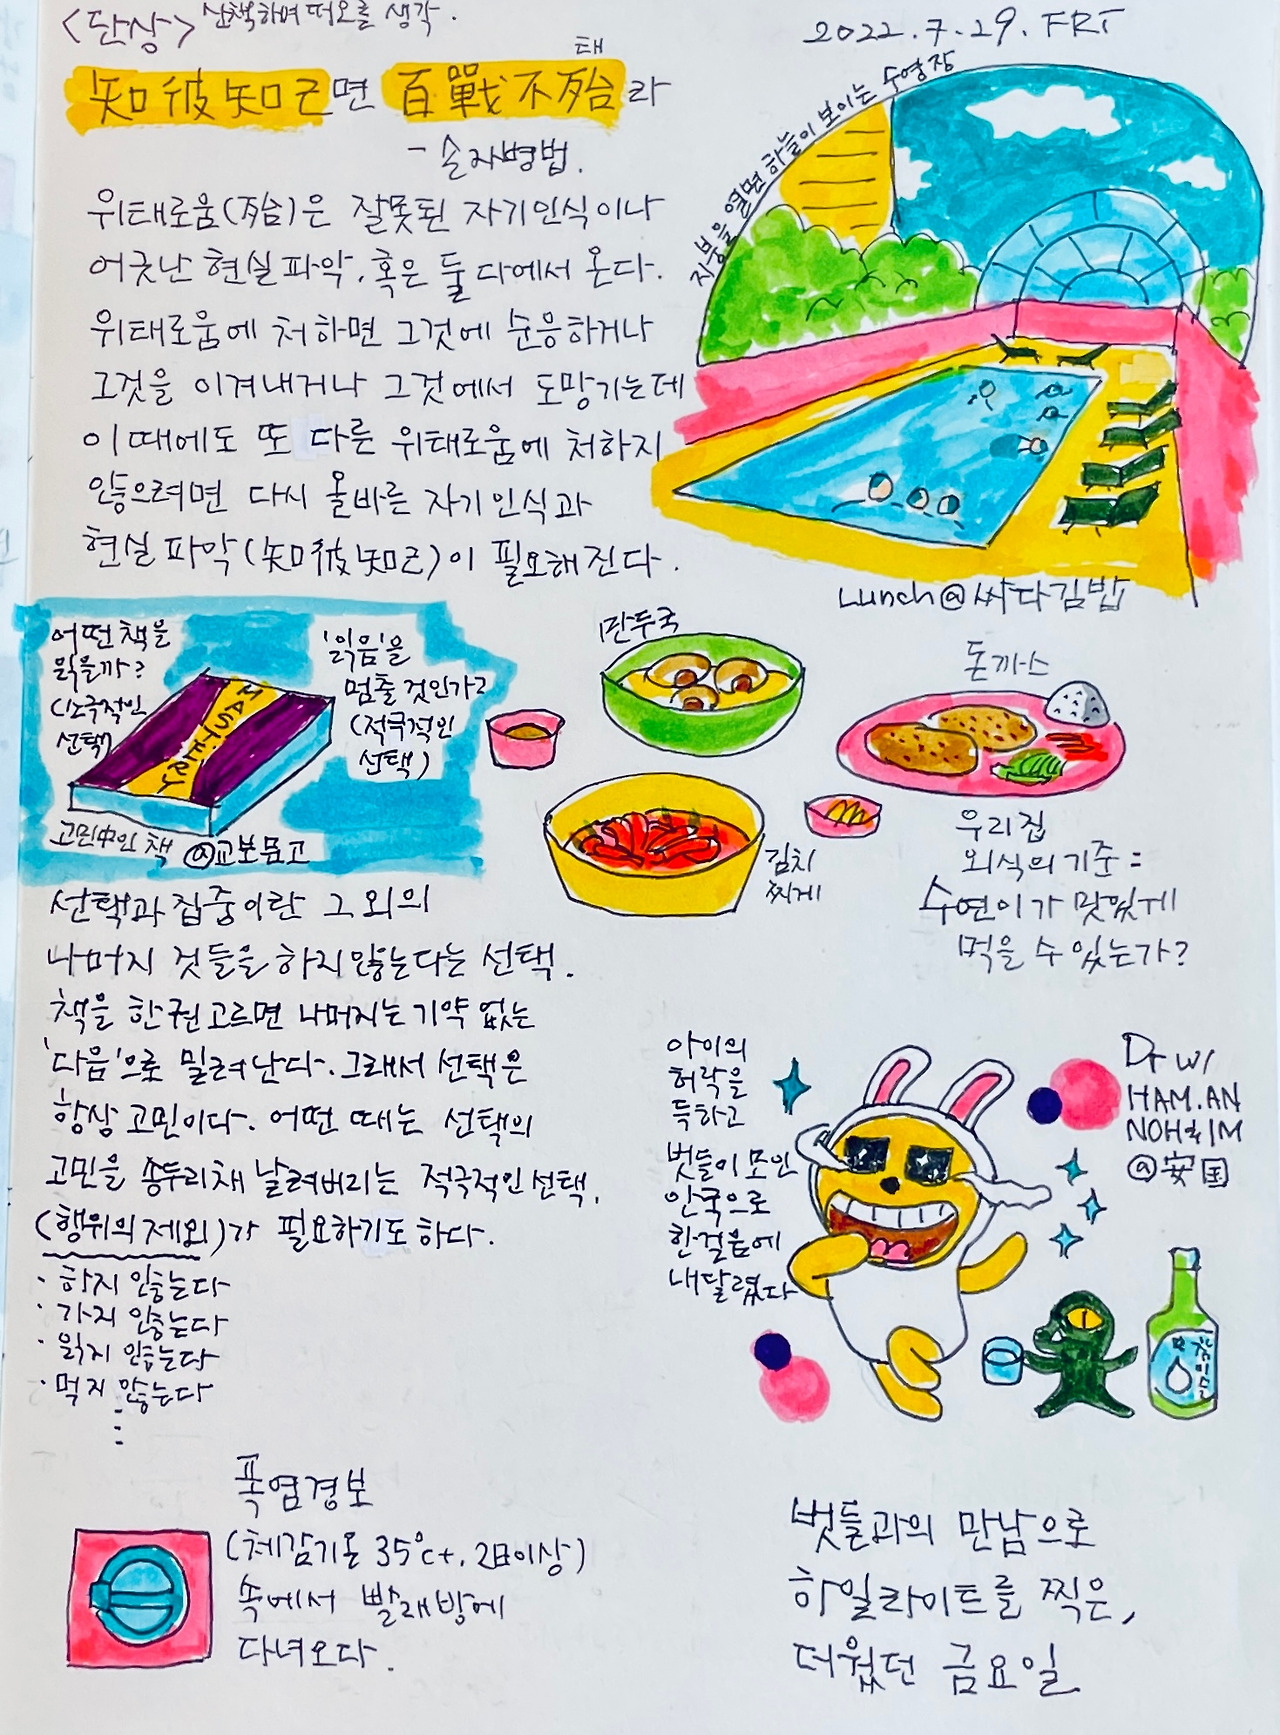 <단상> 산책하며 떠오를 생각.
2022.7.29. FRI
태
知彼知己면 百戰不殆라
- 손자병법.
지붕을 열면 하늘이 보이는 수영장
위태로움(殆)은 잘못된 자기인식이나
어긋난 현실파악, 혹은 둘 다에서 온다.
위태로움에 처하면 그것에 순응하거나
그것을 이겨내거나 그것에서 도망가는데
이 때에도 또 다른 위태로움에 처하지
않으려면 다시 올바른 자기인식과
현실 파악(知彼知己)이 필요해진다.
Lunch@싸다김밥
어떤 책을
읽을까?
(소극적인
선택)
'읽음'을
멈출 것인가?
(적극적인
선택)
MASTERY
고민中인 책 @교보문고
만두국
돈까스
김치
찌개
우리집
외식의 기준 :
수연이가 맛있게
먹을 수 있는가?
선택과 집중이란 그 외의
나머지 것들을 하지 않는다는 선택.
책을 한권 고르면 나머지는 기약 없는
'다음'으로 밀려난다. 그래서 선택은
항상 고민이다. 어떤 때는 선택의
고민을 송두리채 날려버리는 적극적인 선택.
(행위의 제외)가 필요하기도 하다.
· 하지 않는다
· 가지 않는다
· 읽지 않는다
· 먹지 않는다
아이의
허락을
득하고
벗들이 모인
안국으로
한걸음에
내달렸다
Dr w/
HAM.AN
NOH&IM
@安国
참이슬
폭염경보
(체감기온 35℃+, 2日이상)
속에서 빨래방에
다녀오다.
벗들과의 만남으로
하일라이트를 찍은,
더웠던 금요일